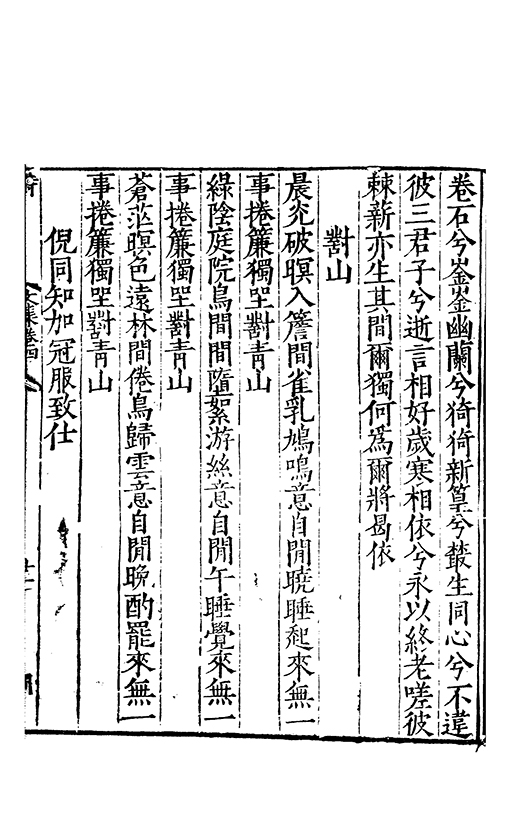 卷石兮崟崟幽蘭兮猗猗新篁兮叢生同心兮不違
彼三君子兮逝言相好歲寒相依兮永以終老嗟彼
棘薪亦生其間爾獨何爲爾將曷依
對山
晨光破暝入簷間雀乳鳩鳴意自閒曉睡起來無一
事捲簾獨坐對青山
綠陰庭院鳥間間墮絮游絲意自閒午睡覺來無一
事捲簾獨坐對青山
蒼茫暝色遠林間倦鳥歸雲意自閒晩酌罷來無一
事捲簾獨坐對青山
倪同知加冠服致仕
文集卷四